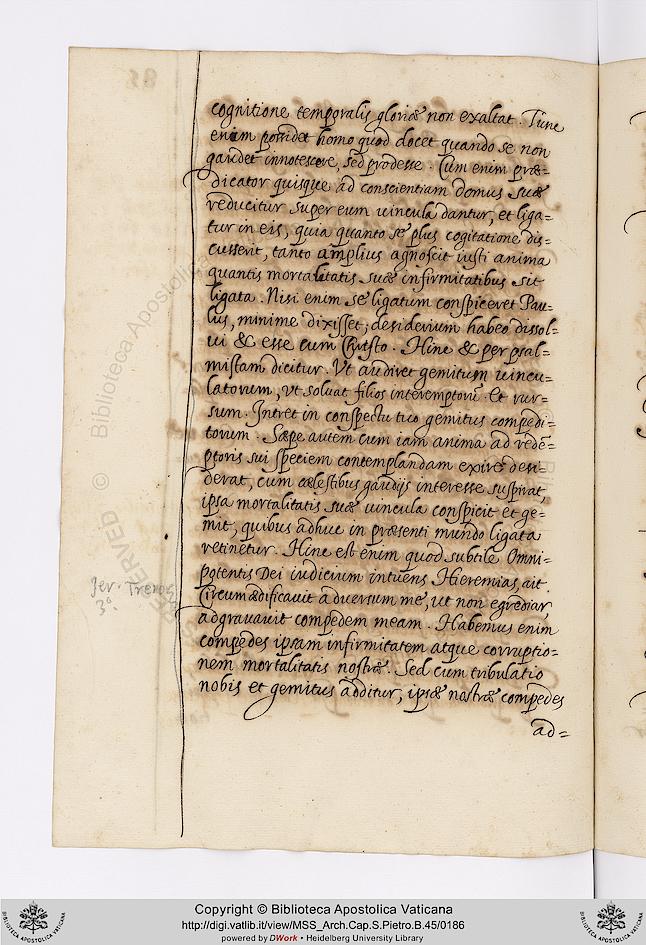 cognitione temporalis gloriæ non exaltat. Tūnc
enim possidet homo quod docet quando se non
gaudet innotescere, sed prodesse. Cum enim præ=
dicator quisque ad conscientiam domus suæ
reducitur super eum uincula dantur, et liga=
tur in eis, quia quanto se plus cogitatione dis=
cusserit, tanto amplius agnoscit iusti anima
quantis mortalitatis suæ infirmitatibus sit
ligata. Nisi enim se ligatum conspiceret Pau=
lus, minime dixisset; desiderium habeo dissol=
ui & esse cum Christo. Hinc & per psal=
mistam dicitur. Vt audiret gemitum uincu=
latorum, ut soluat filios interemptorū. Et rur=
sum. Intret in conspectu tuo gemitus compedi=
torum. Sæpe autem cum iam anima ad redē=
ptoris sui speciem contemplandam exire desi=
derat, cum cælestibus gaudijs interesse suspirat,
ipsa mortalitatis suæ uincula conspicit et ge=
mit, quibus adhuc in præsenti mundo ligata
retinetur. Hinc est enim quod subtile Omni=
potentis Dei iudicium intuens Hieremias ait.
Circumædificauit aduersum me, ut non egrediar,
adgrauauit compedem meam. Habemus enim
compedes ipsam infirmitatem atque corruptio=
nem mortalitatis nostræ. Sed cum tribulatio
nobis et gemitus additur, ipsæ nostræ compedes
ad=
Jer. Trenos
3°.
85
© Biblioteca Apostolica
RESERVED ©
Copyright © Biblioteca Apostolica Vaticana
http://digi.vatlib.it/view/MSS_Arch.Cap.S.Pietro.B.45/0186
powered by DWork • Heidelberg University Library